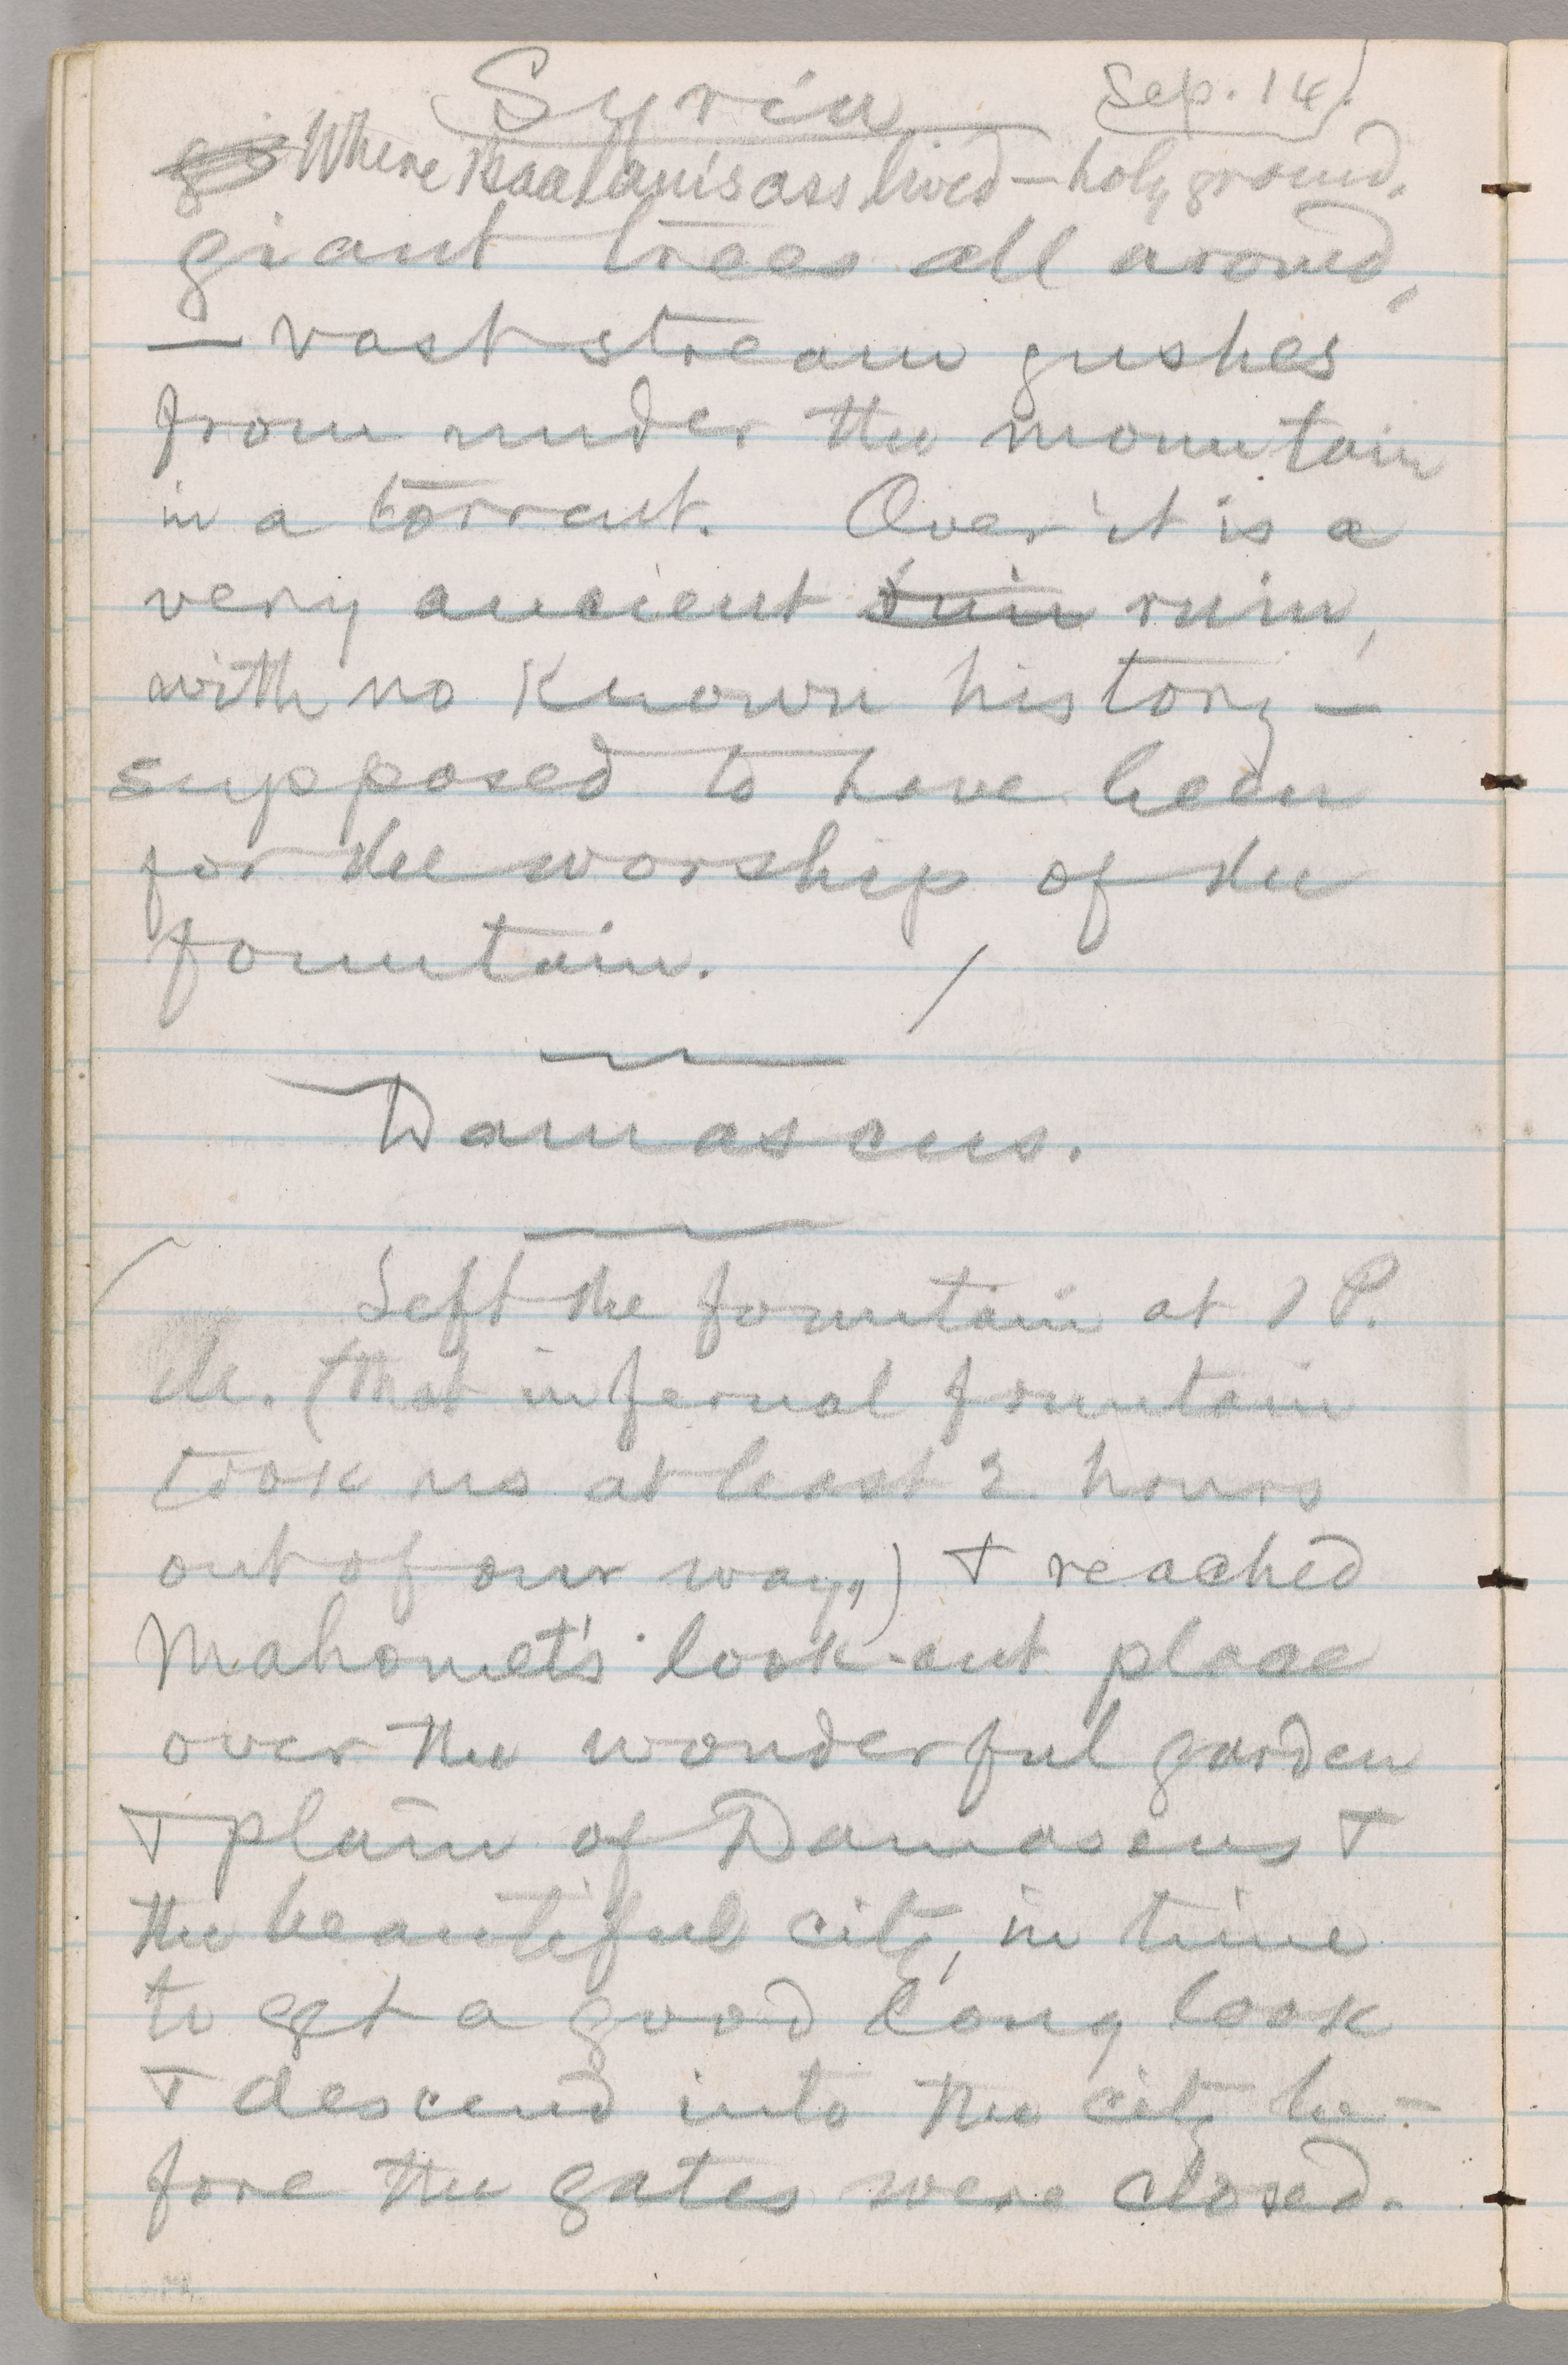 Syria Sep. 14.
Where Baalam's ass lived — holy ground.
giant trees all around,
— vast stream gushes
from under the mountain
in a torrent. Over it is a
very ancient ruin ruin,
with no known history —
supposed to have been
for the worship of the
fountain. /
Damascus.
Left the fountain at 1 P.
M. (that infernal fountain
took us at least 2 hours
out of our way,) & reached
Mahomet's look-out place
over the wonderful garden
& plain of Damascus &
the beautiful city, in time
to get a good long look
& descend into the city be-
fore the gates were closed.